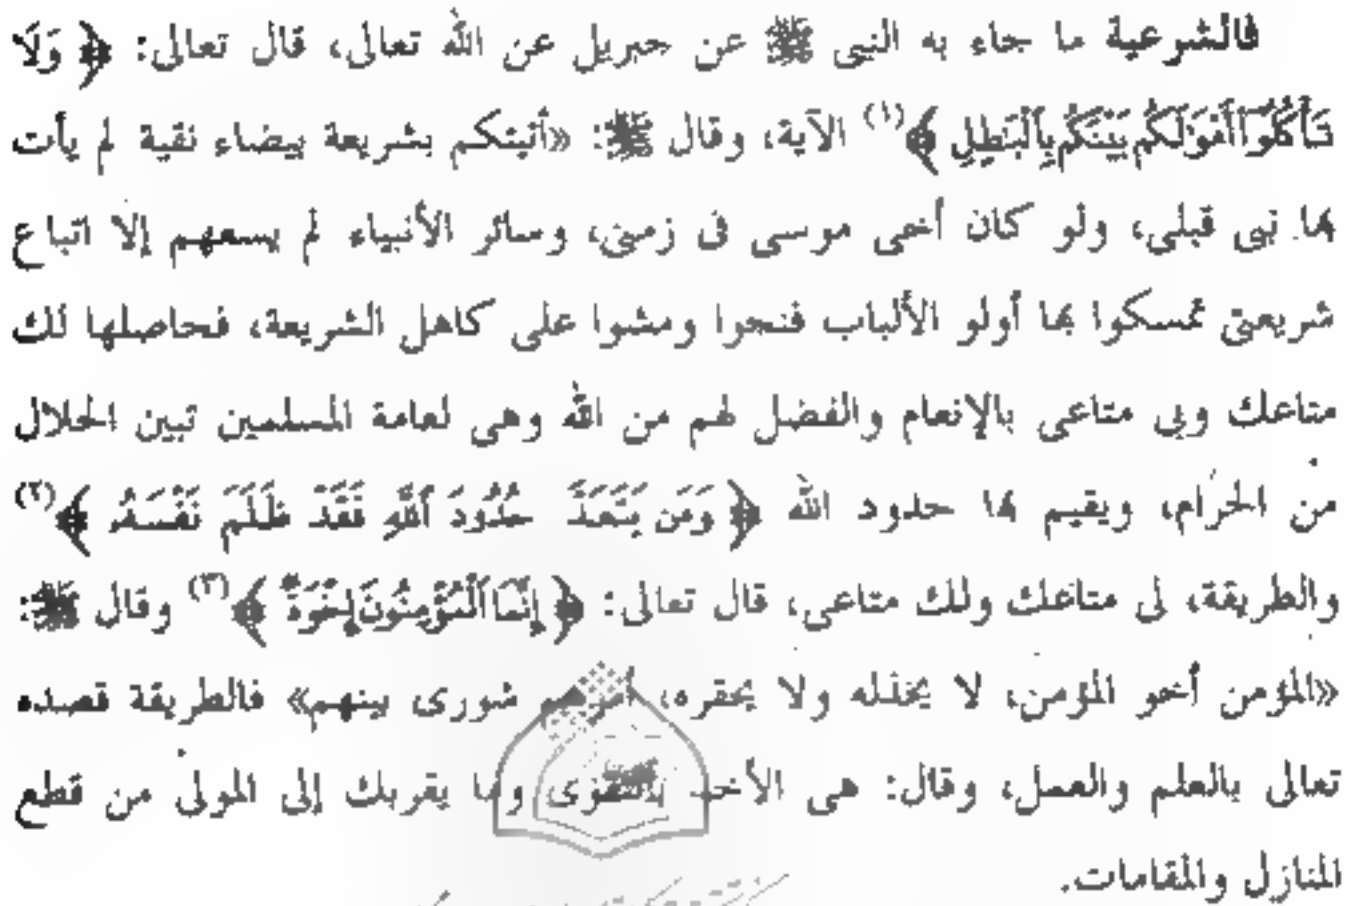 فالشرعية ما جاء به النبى ﷺ عن جبريل عن الله تعالى، قال تعالى: ﴿ وَلَا
تَأْكُلُوٓا۟ أَمْوَٰلَكُم بَيْنَكُم بِٱلْبَـٰطِلِ ﴾(١) الآية، وقال ﷺ: «أتيتكم بشريعة بيضاء نقية لم يأت
بها نبى قبلى، ولو كان أخى موسى فى زمنى، وسائر الأنبياء لم يسعهم إلا اتباع
شريعتى تمسكوا بها أولو الألباب فنجوا ومشوا على كاهل الشريعة، فحاصلها لك
متاعك وبى متاعى بالإنعام والفضل لهم من الله وهى لعامة المسلمين تبين الحلال
من الحرام، ويقيم بها حدود الله ﴿ وَمَن يَتَعَدَّ حُدُودَ ٱللَّهِ فَقَدْ ظَلَمَ نَفْسَهُۥ ﴾(٢)
والطريقة، لى متاعك ولك متاعى، قال تعالى: ﴿ إِنَّمَا ٱلْمُؤْمِنُونَ إِخْوَةٌ ﴾(٣) وقال ﷺ:
«المؤمن أخو المؤمن، لا يخذله ولا يحقره، أمرهم شورى بينهم» فالطريقة قصده
تعالى بالعلم والعمل، وقال: هى الأخذ بالتقوى وما يقربك إلى المولى من قطع
المنازل والمقامات.